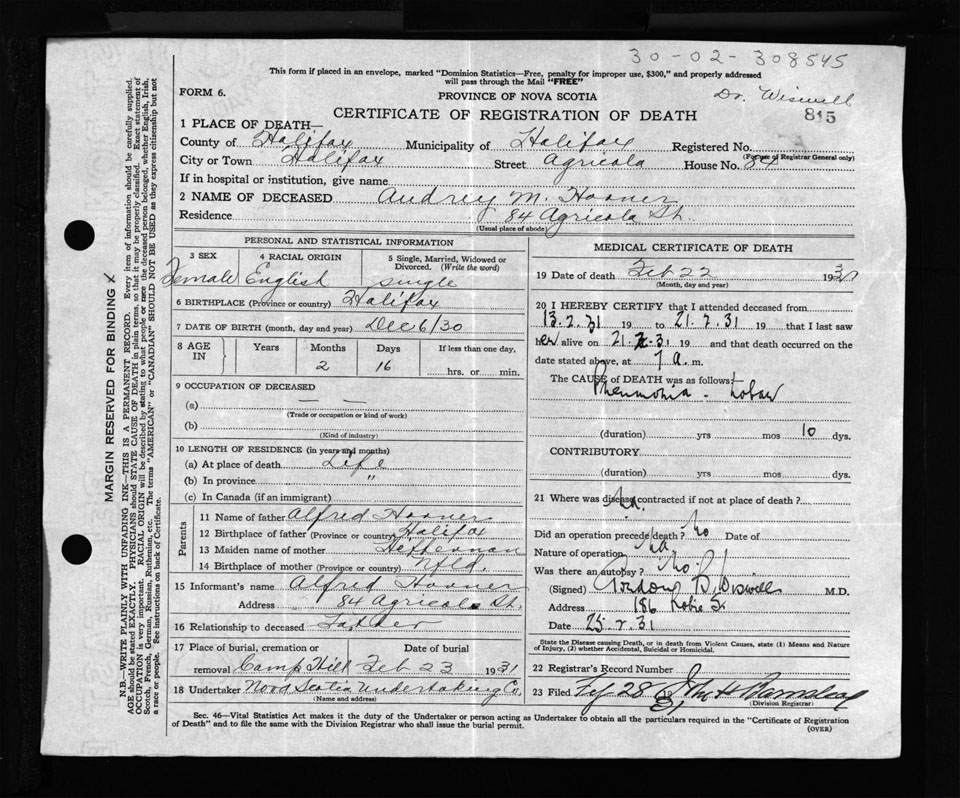 30-02-308545
This form if placed in an envelope, marked "Dominion Statistics—Free, penalty for improper use, $300," and properly addressed
will pass through the Mail "FREE"
Dr. Wiswell
FORM 6.
PROVINCE OF NOVA SCOTIA
815
CERTIFICATE OF REGISTRATION OF DEATH
1 PLACE OF DEATH—
County of Halifax Municipality of Halifax Registered No.
(For use of Registrar General only)
City or Town Halifax Street Agricola House No. 84
If in hospital or institution, give name
2 NAME OF DECEASED Audrey M. Hoover
Residence 84 Agricola St.
(Usual place of abode)
PERSONAL AND STATISTICAL INFORMATION
3 SEX 4 RACIAL ORIGIN 5 Single, Married, Widowed or
Divorced. (Write the word)
Female English single
6 BIRTHPLACE (Province or country) Halifax
7 DATE OF BIRTH (month, day and year) Dec 6/30
8 AGE IN Years Months Days If less than one day,
2 16 hrs. or min.
9 OCCUPATION OF DECEASED
(a) — —
(Trade or occupation or kind of work)
(b)
(Kind of industry)
10 LENGTH OF RESIDENCE (in years and months)
(a) At place of death Life
(b) In province "
(c) In Canada (if an immigrant)
Parents
11 Name of father Alfred Hoover
12 Birthplace of father (Province or country) Halifax
13 Maiden name of mother Heffernan
14 Birthplace of mother (Province or country) Nfld.
15 Informant's name Alfred Hoover
Address 84 Agricola St.
16 Relationship to deceased Father
17 Place of burial, cremation or Date of burial
removal Camp Hill Feb 23 1931
18 Undertaker Nova Scotia Undertaking Co.
(Name and address)
MEDICAL CERTIFICATE OF DEATH
19 Date of death Feb 22 193
(Month, day and year)
20 I HEREBY CERTIFY that I attended deceased from
13.2.31 19 to 21.2.31 19 that I last saw
her alive on 21.2.31 19 and that death occurred on the
date stated above, at 7 a. m.
The CAUSE of DEATH was as follows:
Pneumonia - Lobar
(duration) yrs mos 10 dys.
CONTRIBUTORY
(duration) yrs mos dys.
21 Where was disease contracted if not at place of death?
Did an operation precede death? No Date of
Nature of operation
Was there an autopsy? No
(Signed) B. Wiswell M.D.
Address 186 Robie St
Date 25.2.31
State the Disease causing Death, or in death from Violent Causes, state (1) Means and Nature
of Injury, (2) whether Accidental, Suicidal or Homicidal.
22 Registrar's Record Number
23 Filed 28 19 31
(Division Registrar)
Sec. 46—Vital Statistics Act makes it the duty of the Undertaker or person acting as Undertaker to obtain all the particulars required in the "Certificate of Registration
of Death" and to file the same with the Division Registrar who shall issue the burial permit.
(OVER)
MARGIN RESERVED FOR BINDING
N.B.—WRITE PLAINLY WITH UNFADING INK—THIS IS A PERMANENT RECORD. Every item of information should be carefully supplied.
AGE should be stated EXACTLY. PHYSICIANS should STATE CAUSE OF DEATH in plain terms, so that it may be properly classified. Exact statement of
OCCUPATION is very important. RACIAL ORIGIN will be described by stating to what people or race the deceased person belonged, whether English, Irish,
Scotch, French, German, Russian, Ruthenian, etc. The terms "AMERICAN" or "CANADIAN" SHOULD NOT BE USED as they express citizenship but not
a race or people. See instructions on back of Certificate.